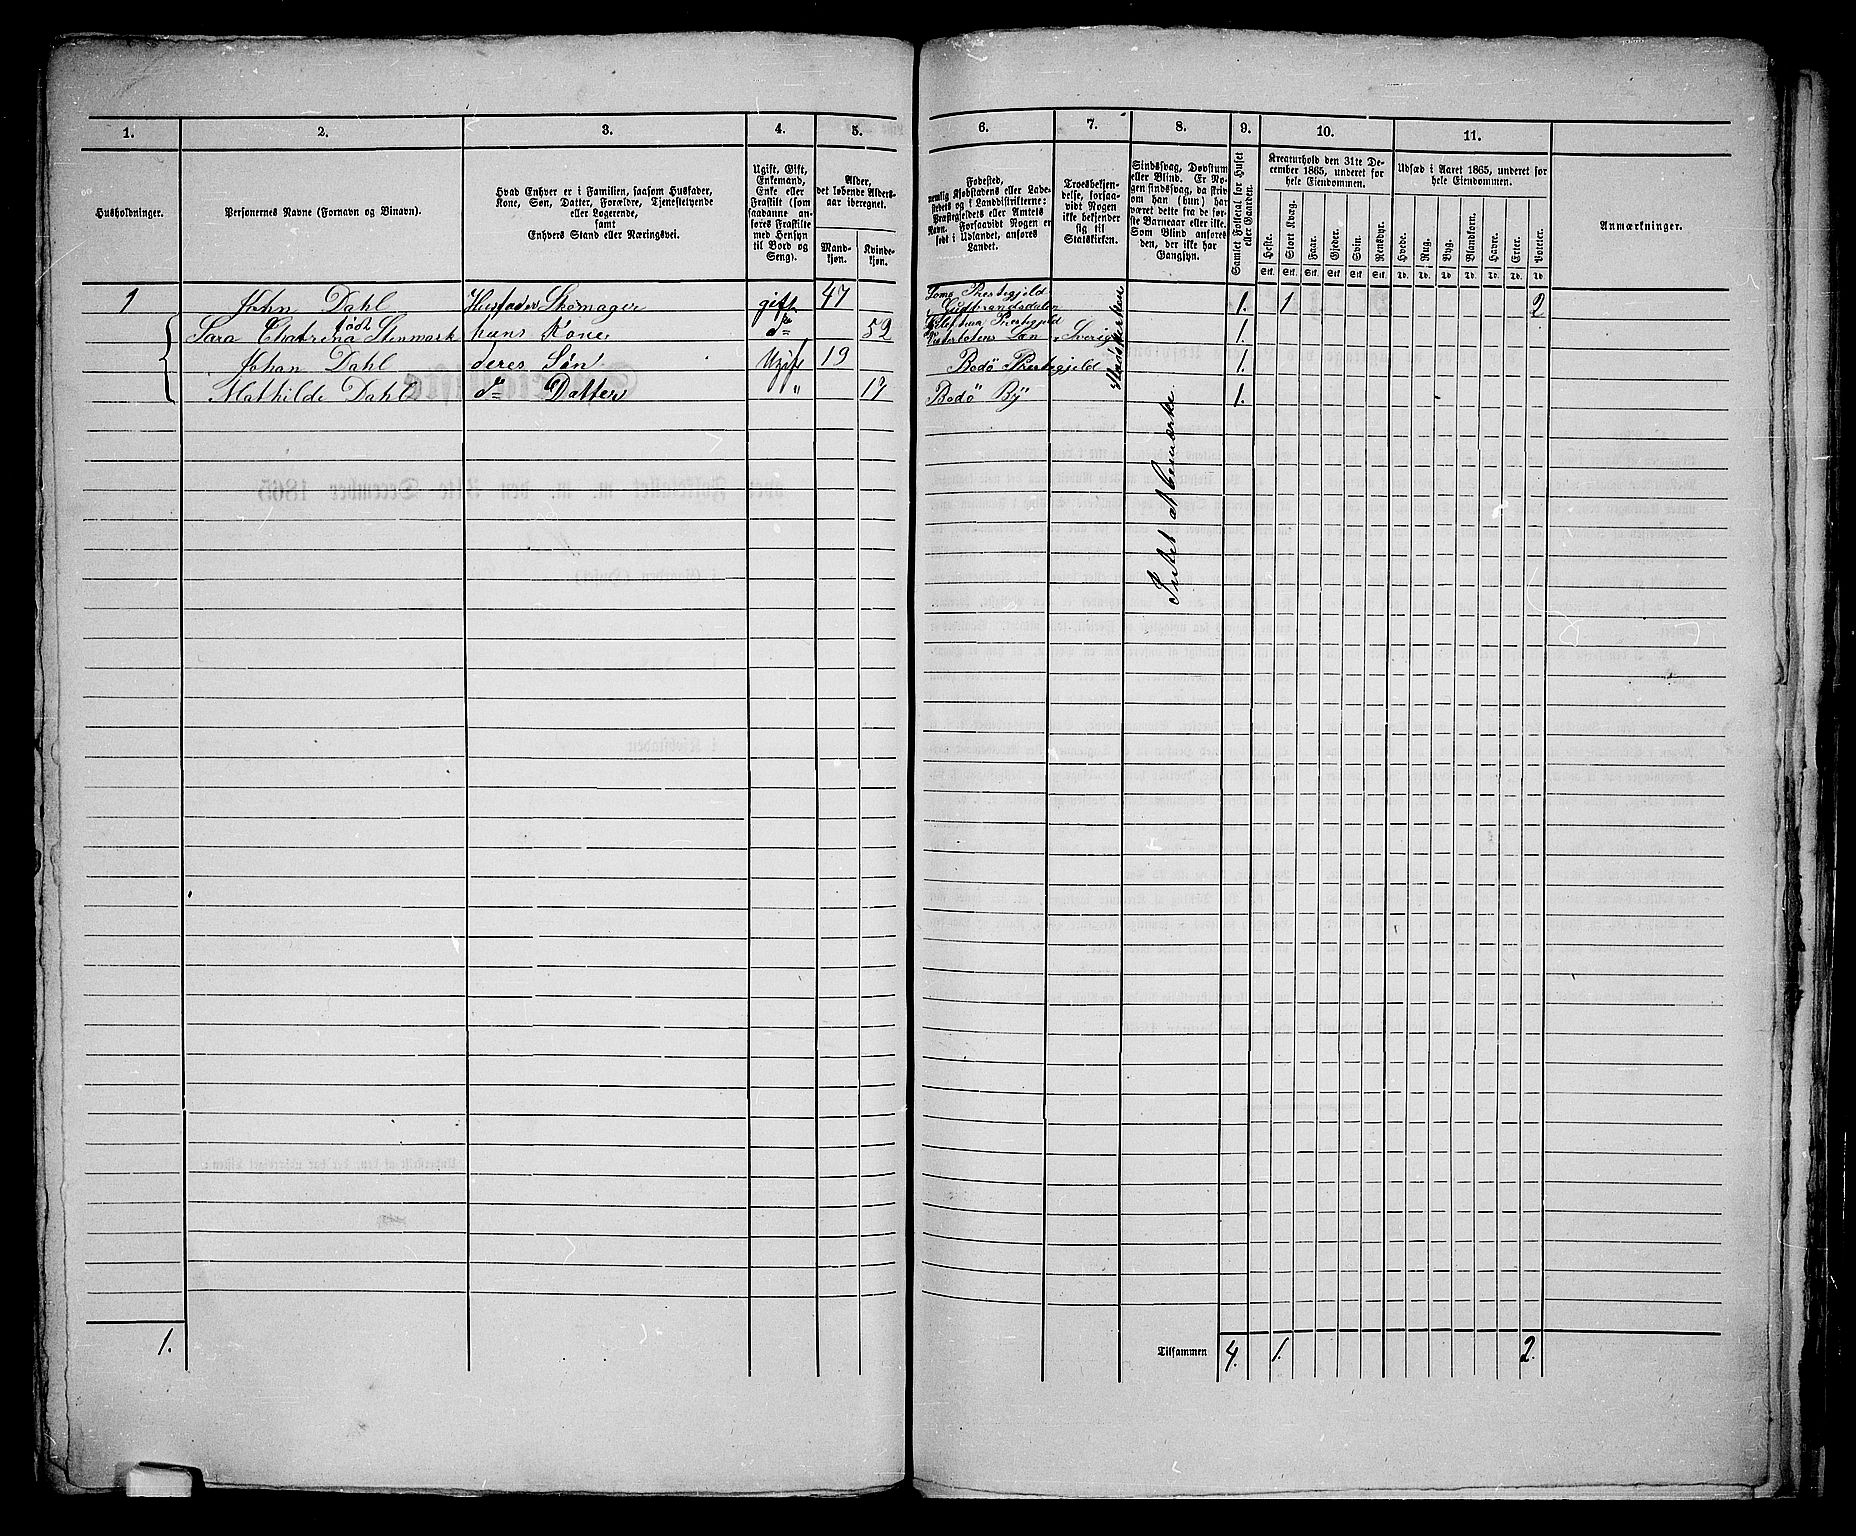 1. 2. 3. 4. 5. 6. 7. 8. 9. 10. 11.
Husholdninger.
Personernes Navne (Fornavn og Binavn).
Hvad Enhver er i Familien, saasom Husfader,
Kone, Søn, Datter, Forældre, Tjenestetyende
eller Logerende,
samt
Enhvers Stand eller Næringsvei.
Ugift, Gift,
Enkemand,
Enke eller
Fraskilt (som
saadanne an-
føres Fraskilte
med Hensyn
til Bord og
Seng).
Alder,
det løbende Alders-
aar iberegnet.
Mand-
kjøn.
Kvinde-
kjøn.
Fødested,
nemlig Kjøbstadens eller Lade-
stedets og i Landdistrikterne:
Præstegjeldets eller Amtets
Navn. Forsaavidt Nogen er
født i Udlandet, anføres
Landet.
Troesbekjen-
delse, forsaa-
vidt Nogen
ikke bekjender
sig til
Statskirken.
Sindssvag, Døvstum
eller Blind. Er No-
gen sindssvag, da skriv
om han (hun) har
været dette fra de før-
ste Barneaar eller ikke.
Som Blind anføres
den, der ikke har
Gangsyn.
Samlet Folketal for Huset
eller Gaarden.
Kreaturhold den 31te De-
cember 1865, underet for
hele Eiendommen.
Heste. Stort Kvæg. Faar. Gjeder. Svin. Rensdyr.
Stk. Stk. Stk. Stk. Stk. Stk.
Udsæd i Aaret 1865, underet for
hele Eiendommen.
Hvede. Rug. Byg. Blandkorn. Havre. Erter. Poteter.
Td. Td. Td. Td. Td. Td. Td.
Anmærkninger.
1 John Dahl Husfader Skomager gift 47 Loms Prestegjeld Gudbrandsdalen 1. 1 2
Sara Chatrina født Stenmark hans Kone do 52 Prestegjeld Vesterbotens Læn i Sverig 1.
Johan Dahl deres Søn Ugift 19 Bodö Prestegjeld 1.
Mathilde Dahl do Datter " 17 Bodö By 1.
Statskirken
Intet at bemærke.
1. Tilsammen 4. 1. 2.